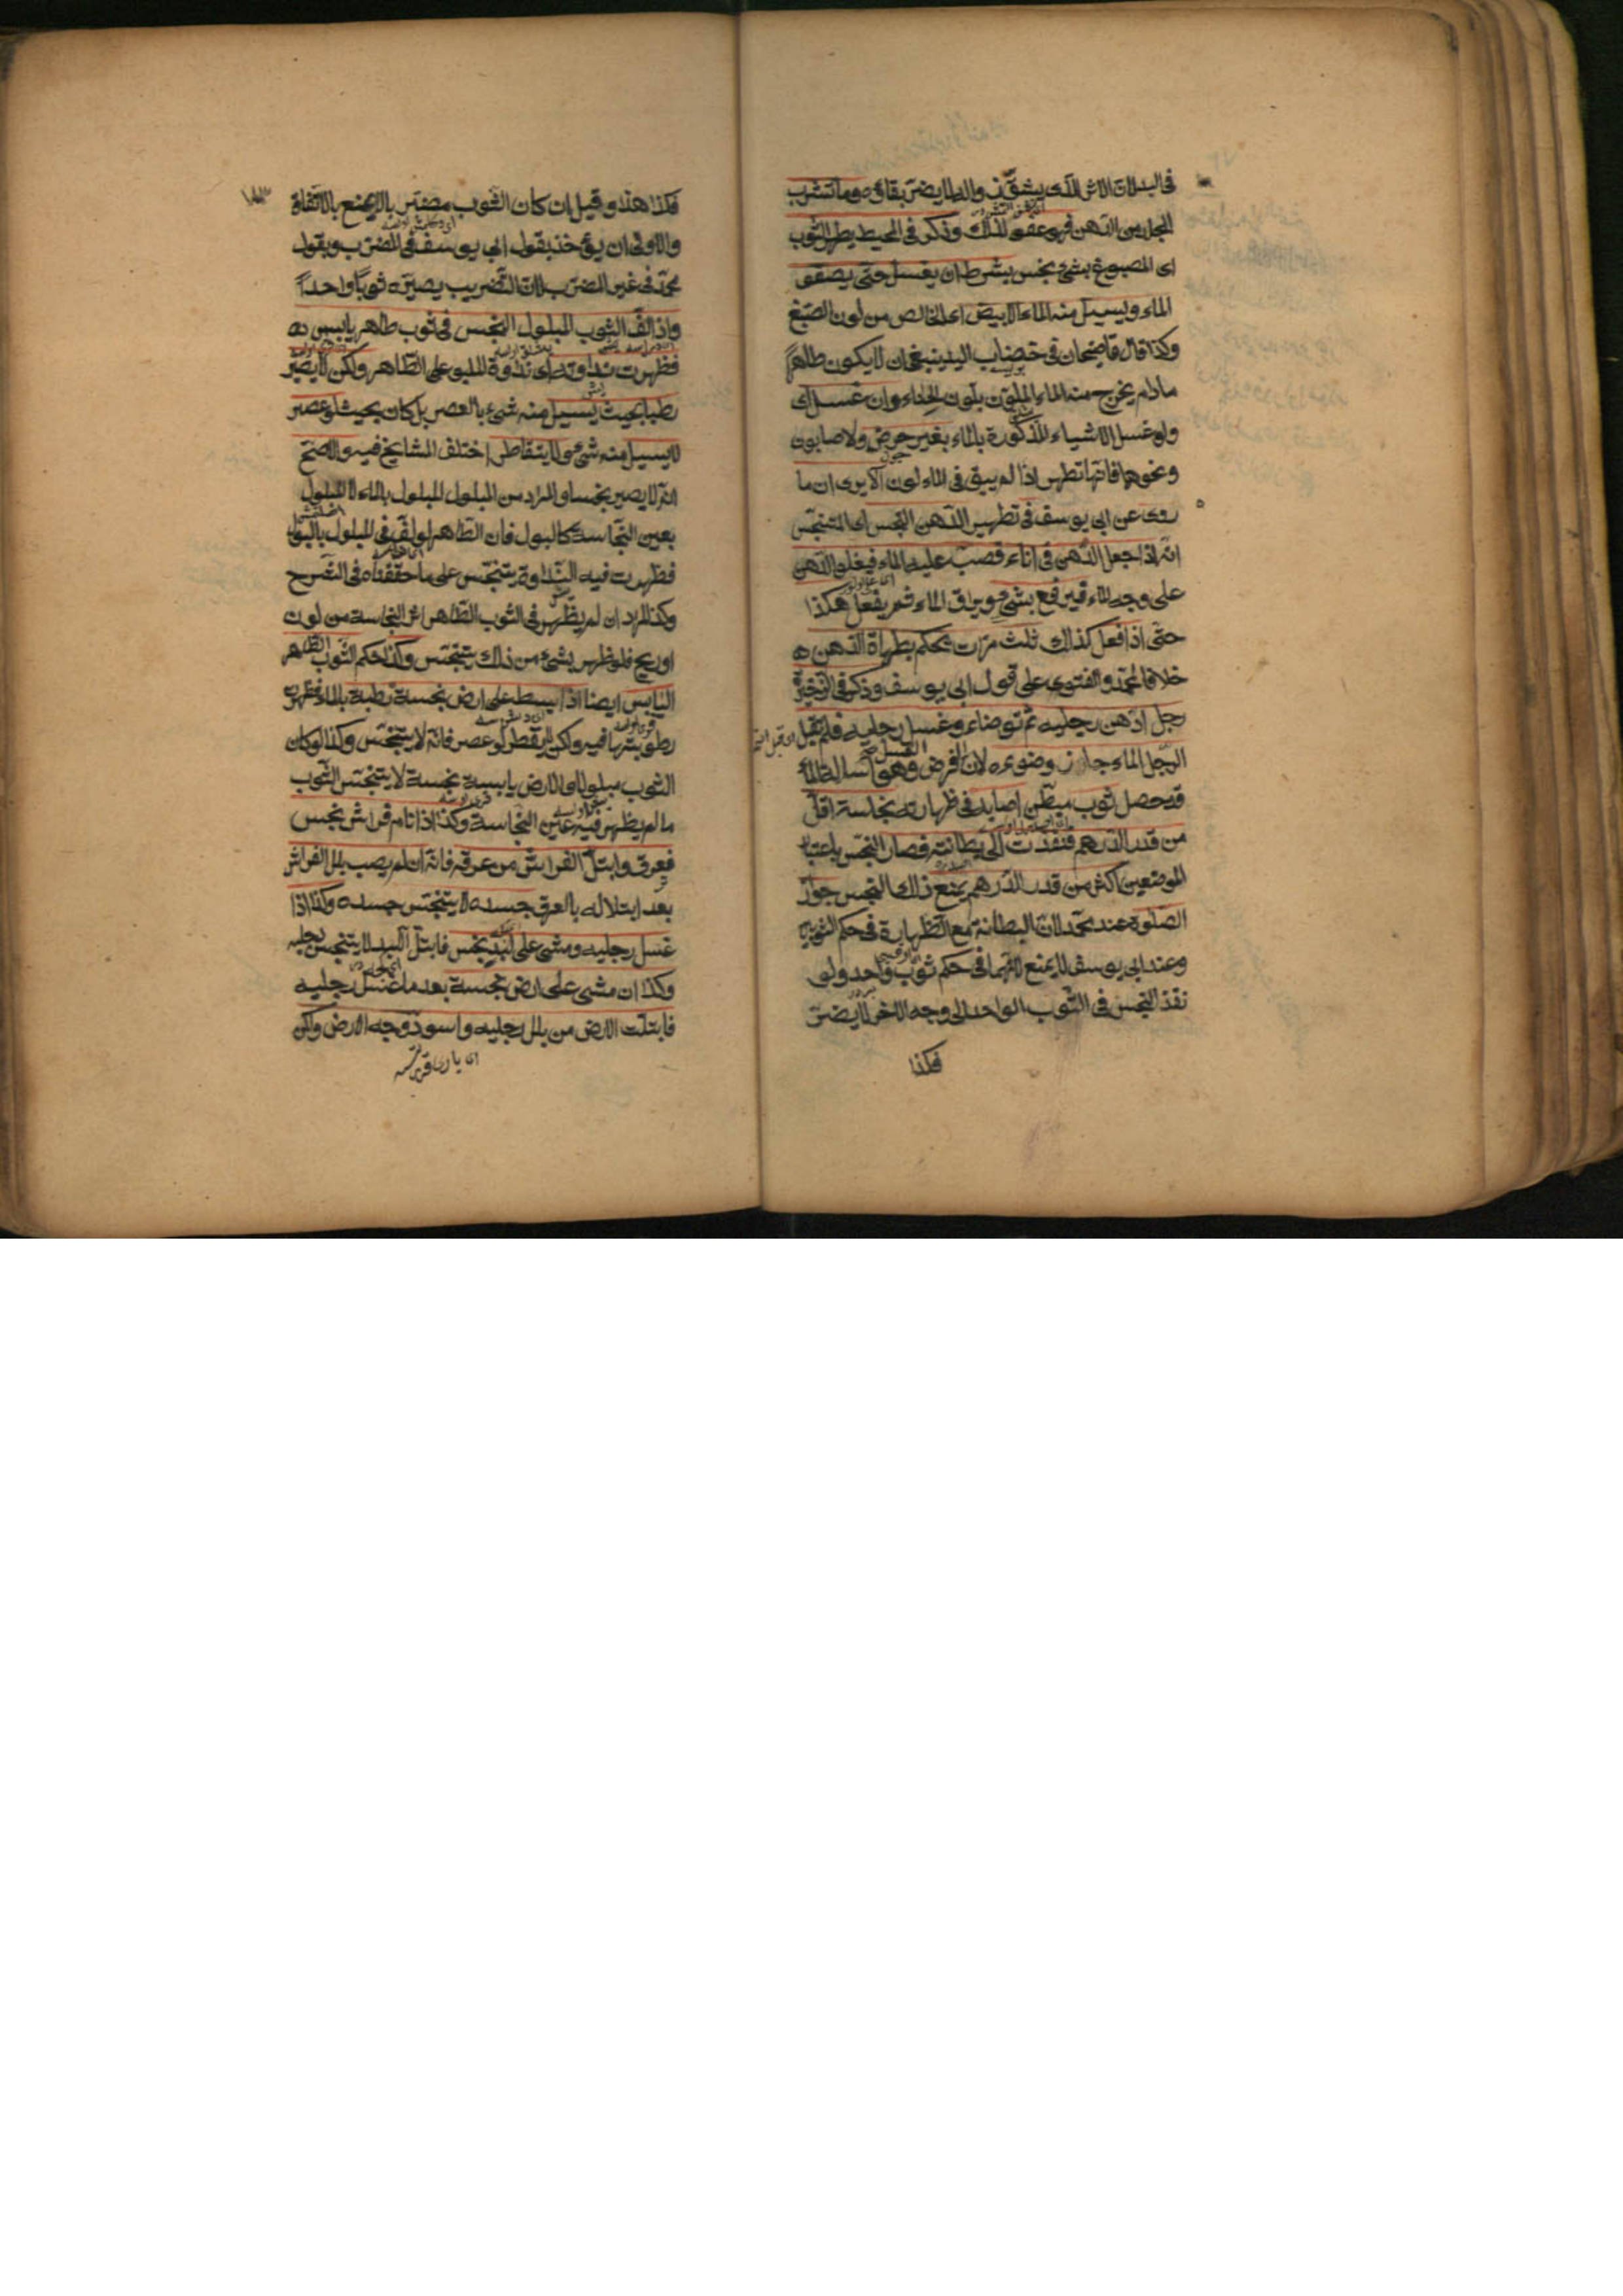 في البدن لان الاثر الذى يشق زواله لا يضر بقاؤه وما تشرب
الجلد من الدهن فهو عفو لذلك وذكر في المحيط يطهر الثوب
اى المصبوغ بشئ نجس بشرط ان يغسل حتى يصفو
الماء ويسيل منه الماء الابيض اى الخالص من لون الصبغ
وكذا قال قاضيخان في خضاب اليد ينبغى ان لا يكون طاهرًا
مادام يخرج منه الماء الملون بلون الحناء وان غسل اى
ولو غسل الاشياء المذكورة بالماء بغير حرض ولا صابون
ونحوهما فانها تطهر اذا لم يبق في الماء لون الا يرى ان ما
روى عن ابى يوسف في تطهير الدهن النجس اى المتنجس
انه اذا جعل الدهن في اناء فصب عليه الماء فيعلو الدهن
على وجه الماء فيرفع بشئ ويراق الماء ثم يفعل هكذا
حتى اذا فعل كذلك ثلث مرات يحكم بطهارة الدهن
خلافا لمحمد والفتوى على قول ابى يوسف وذكر في الذخيرة
رجل ادهن رجليه ثم توضاء وغسل رجليه فلم يقبل
الرجل الماء جاز وضوءه لان الفرض الغسل وهو اسالة الماء
قد حصل ثوب مبطن اصابه في ظهارته نجاسة اقل
من قدر الدرهم فنفذت الى بطانته فصار النجس باعتبار
الموضعين اكثر من قدر الدرهم يمنع ذلك النجس جواز
الصلوة عند محمد لان البطانة مع الظهارة في حكم الثوبين
وعند ابى يوسف لا يمنع لانهما في حكم ثوب واحد ولو
نفذ النجس في الثوب الواحد الى وجه الاخر لا يضر
فكذا
١٨٣
فكذا هذا وقيل ان كان الثوب مضربا لا يمنع بالاتفاق
والاولى ان يؤخذ بقول ابى يوسف في المضرب وبقول
محمد في غير المضرب لان التضريب يصيره ثوبا واحدا
واذا لف الثوب المبلول النجس في ثوب طاهر يابس
فظهرت نداوته اى نداوة المبلول على الطاهر ولكن لا يصير
رطبا بحيث يسيل منه شئ بالعصر بل كان بحيث لو عصر
لا يسيل منه شئ ولا يتقاطر اختلف المشايخ فيه والاصح
انه لا يصير نجسا والمراد من المبلول المبلول بالماء لا المبلول
بعين النجاسة كالبول فان الطاهر لو لف في المبلول بالبول
فظهرت فيه النداوة يتنجس على ما حققناه في الشرح
وكذا المراد ان لم يظهر في الثوب الطاهر اثر النجاسة من لون
او ريح فلو ظهر شئ من ذلك يتنجس وكذا حكم الثوب الطاهر
اليابس ايضا اذا بسط على ارض نجسة رطبة بالماء فظهر
رطوبتها فيه ولكن لم يقطر لو عصر فانه لا يتنجس وكذا لو كان
الثوب مبلولا والارض يابسة نجسة لا يتنجس الثوب
ما لم يظهر فيه عين النجاسة وكذا اذا نام على فراش نجس
فعرق وابتل الفراش من عرقه فانه ان لم يصب بلل الفراش
بعد ابتلاله بالعرق جسده لا يتنجس جسده وكذا اذا
غسل رجليه ومشى على لبد نجس فابتل اللبد لا يتنجس رجليه
وكذا ان مشى على ارض نجسة بعد ما غسل رجليه
فابتلت الارض من بلل رجليه واسود وجه الارض ولكن